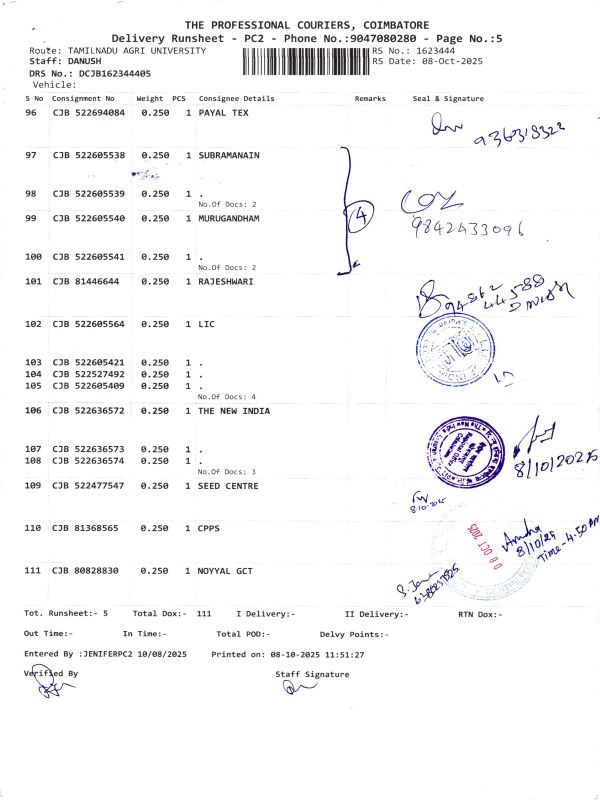 THE PROFESSIONAL COURIERS, COIMBATORE
Delivery Runsheet - PC2 - Phone No.:9047080280 - Page No.:5
Route: TAMILNADU AGRI UNIVERSITY RS No.: 1623444
Staff: DANUSH RS Date: 08-Oct-2025
DRS No.: DCJB162344405
Vehicle:
S No Consignment No Weight PCS Consignee Details Remarks Seal & Signature
96 CJB 522694084 0.250 1 PAYAL TEX
936318322
97 CJB 522605538 0.250 1 SUBRAMANAIN
98 CJB 522605539 0.250 1 .
No.Of Docs: 2
99 CJB 522605540 0.250 1 MURUGANDHAM
4
9842433096
100 CJB 522605541 0.250 1 .
No.Of Docs: 2
101 CJB 81446644 0.250 1 RAJESHWARI
102 CJB 522605564 0.250 1 LIC
103 CJB 522605421 0.250 1 .
104 CJB 522527492 0.250 1 .
105 CJB 522605409 0.250 1 .
No.Of Docs: 4
106 CJB 522636572 0.250 1 THE NEW INDIA
107 CJB 522636573 0.250 1 .
108 CJB 522636574 0.250 1 .
8/10/2025
No.Of Docs: 3
109 CJB 522477547 0.250 1 SEED CENTRE
8.10.2025
110 CJB 81368565 0.250 1 CPPS
08 OCT 2025
8/10/25
Time-4.50
111 CJB 80828830 0.250 1 NOYYAL GCT
Tot. Runsheet:- 5 Total Dox:- 111 I Delivery:- II Delivery:- RTN Dox:-
Out Time:- In Time:- Total POD:- Delvy Points:-
Entered By :JENIFERPC2 10/08/2025 Printed on: 08-10-2025 11:51:27
Verified By Staff Signature